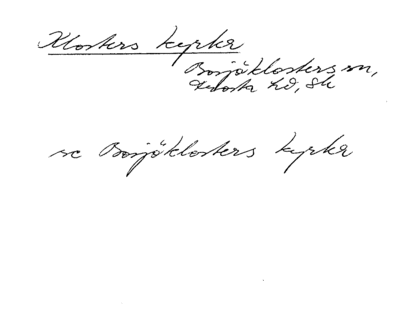 Klosters kyrka
Bosjöklosters sn,
Frosta hd, Sk
se Bosjöklosters kyrka